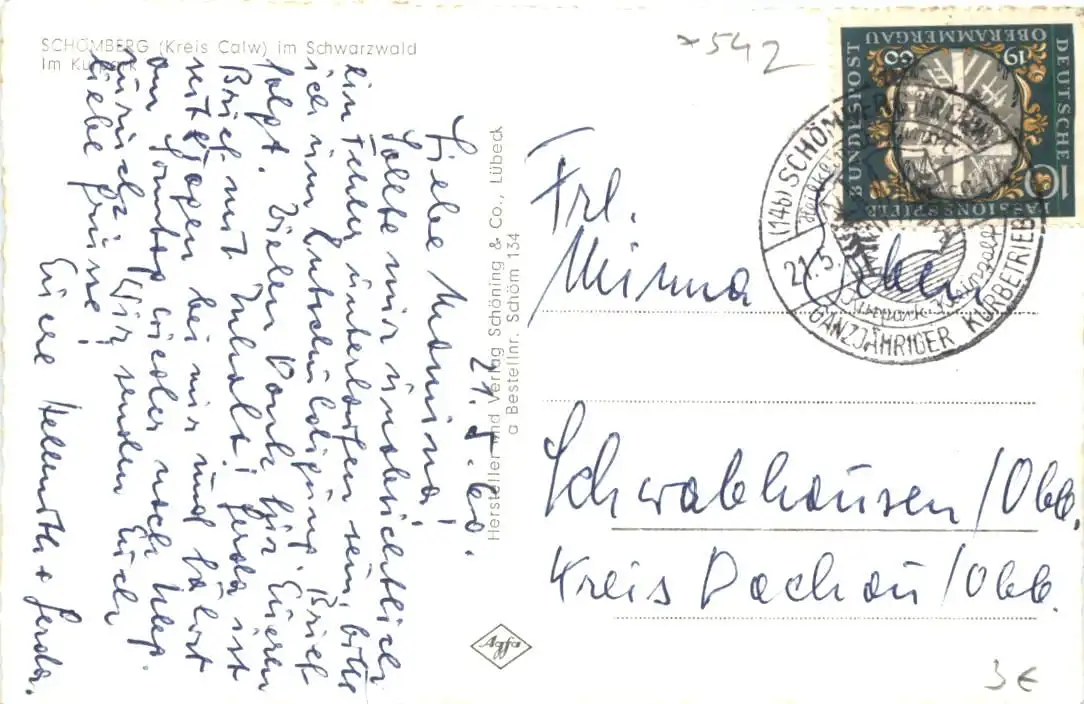 SCHÖMBERG (Kreis Calw) im Schwarzwald
Im Kurpark
21.5.60.
Liebe Mamina!
Sollte mir inabsichtlich
ein Fehler unterlaufen sein, bitte
ich um Entschuldigung. Brief
folgt. Vielen Dank für Eueren
Brief mit Inhalt! Gerda ist
seit Tagen bei mir und fährt
am Sonntag wieder nach
zurück. Wir senden Euch
liebe Grüsse!
Euere Hellmuth + Gerda.
Hersteller und Verlag Schöning & Co., Lübeck
a Bestellnr. Schöm 134
Agfa
×542
DEUTSCHE
BUNDESPOST
OBERAMMERGAU
19 60
PASSIONSSPIELE
10
(14b) SCHÖMBERG
21.5.
GANZJÄHRIGER KURBETRIEB
Frl.
Minna
Schwabhausen/Obb.
Kreis Dachau/Obb.
3€